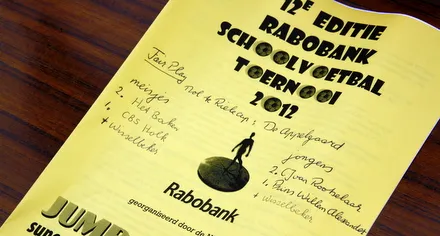 12E EDITIE
RABOBANK
SCHOOLVOETBAL
TOERNOOI
2012
Fair Play
Nol te Riele cup: De Appelgaard
meisjes
2. Het Baken
1. CBS Holk
+ Wisselbeker
jongens
2. CJ van Rootselaar
1. Prins Willem Alexander
+ wisselbeker
Rabobank
georganiseerd door de
JUMBO